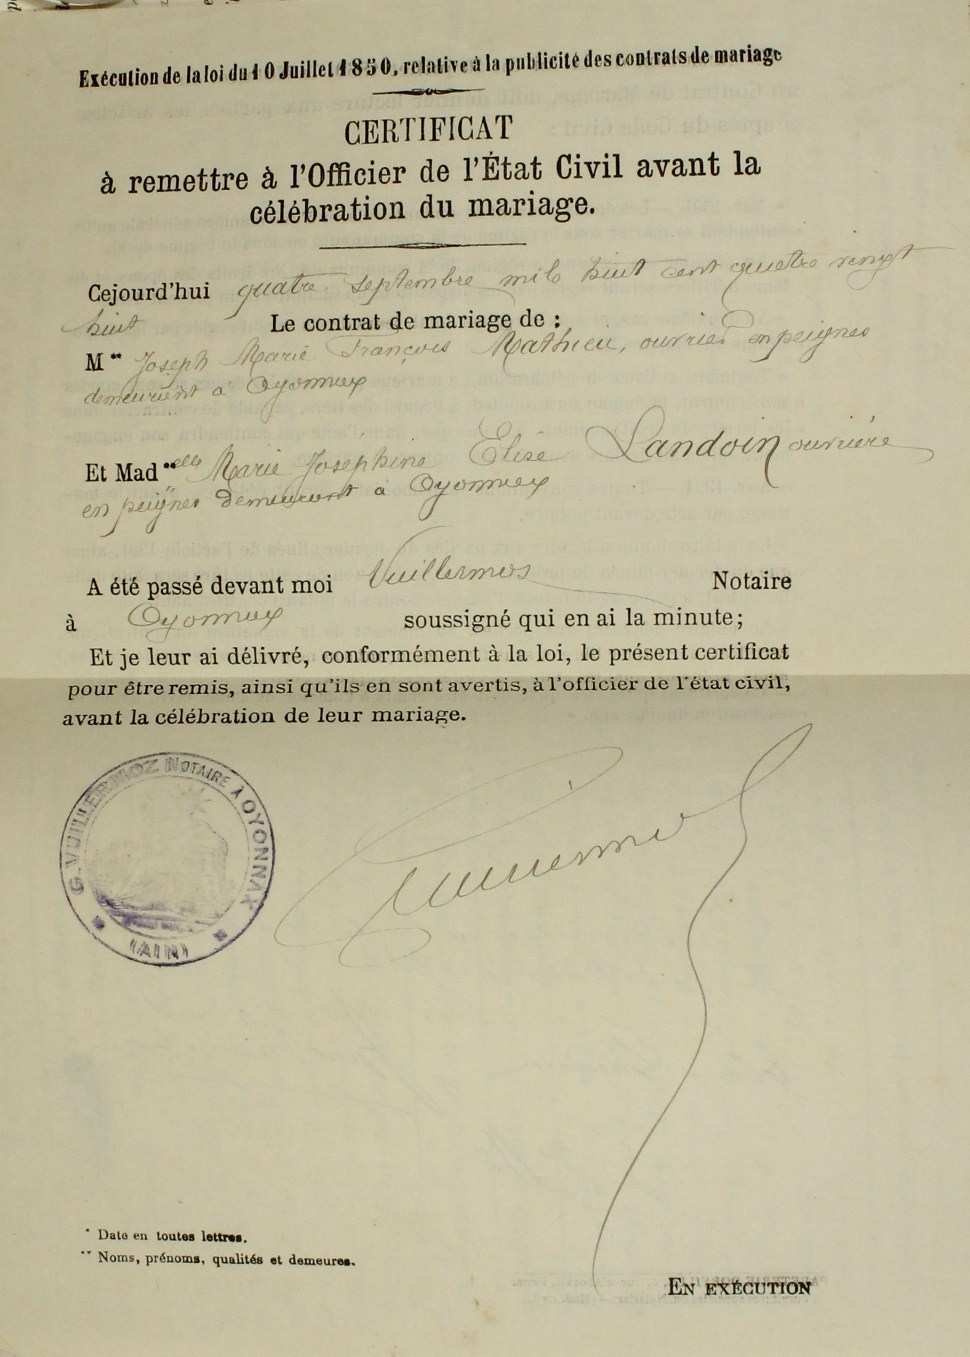 Exécution de la loi du 10 Juillet 1850, relative à la publicité des contrats de mariage
CERTIFICAT
à remettre à l'Officier de l'État Civil avant la
célébration du mariage.
Cejourd'hui quatre septembre mile huit cent quatre vingt
huit Le contrat de mariage de :
M** Joseph Marie François Mathieu, ouvrier en peignes
demeurant à Oyonnax
Et Mad**elle Marie Joséphine Elise Landoin ouvrière
en peignes demeurant à Oyonnax
A été passé devant moi Vuillermoz Notaire
à Oyonnax soussigné qui en ai la minute;
Et je leur ai délivré, conformément à la loi, le présent certificat
pour être remis, ainsi qu'ils en sont avertis, à l'officier de l'état civil,
avant la célébration de leur mariage.
G. VUILLERMOZ NOTAIRE À OYONNAX
(AIN)
* Date en toutes lettres.
** Noms, prénoms, qualités et demeures.
EN EXÉCUTION